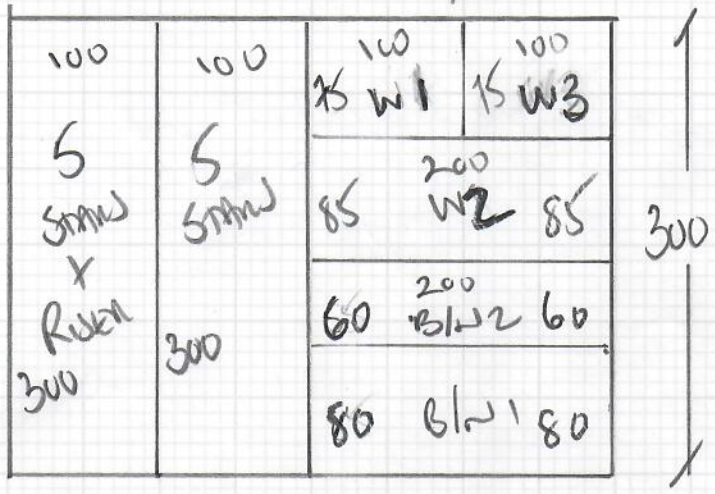 100
S
STAND
Y
RISER
300
100
S
STAND
300
100
75 W1
100
75 W3
200
85 W2 85
200
60 B/N2 60
80 B/N1 80
300